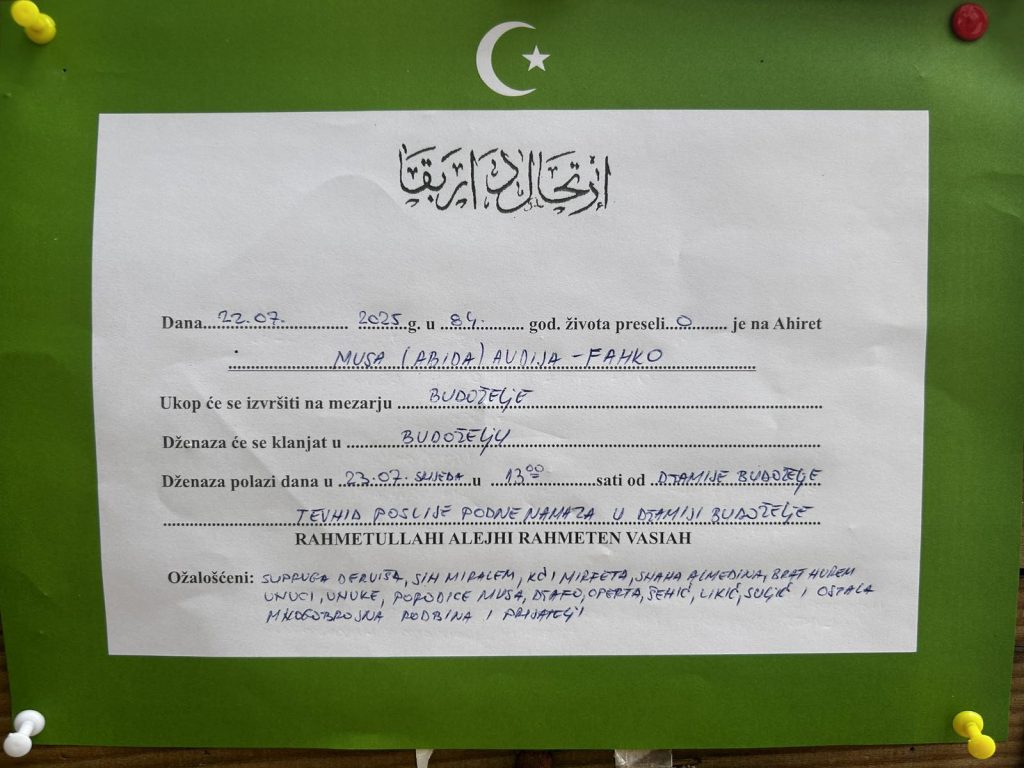 إرتحال دار بقا
Dana 22.07. 2025 g. u 84. god. života preseli o je na Ahiret
MUSA (ABIDA) AVDIJA - FAHKO
Ukop će se izvršiti na mezarju BUDOŽELJE
Dženaza će se klanjat u BUDOŽELJU
Dženaza polazi dana u 23.07. SRIJEDA u 13 00 sati od DŽAMIJE BUDOŽELJE
TEVHID POSLIJE PODNE NAMAZA U DŽAMIJI BUDOŽELJE
RAHMETULLAHI ALEJHI RAHMETEN VASIAH
Ožalošćeni: SUPRUGA DERVIŠA, SIN MIRALEM, KĆI MIRFETA, SNAHA ALMEDINA, BRAT HUREM
UNUCI, UNUKE, PORODICE MUSA, DŽAFO, OPERTA, ŠEHIĆ, LIKIĆ, SULJIĆ I OSTALA
MNOGOBROJNA RODBINA I PRIJATELJI